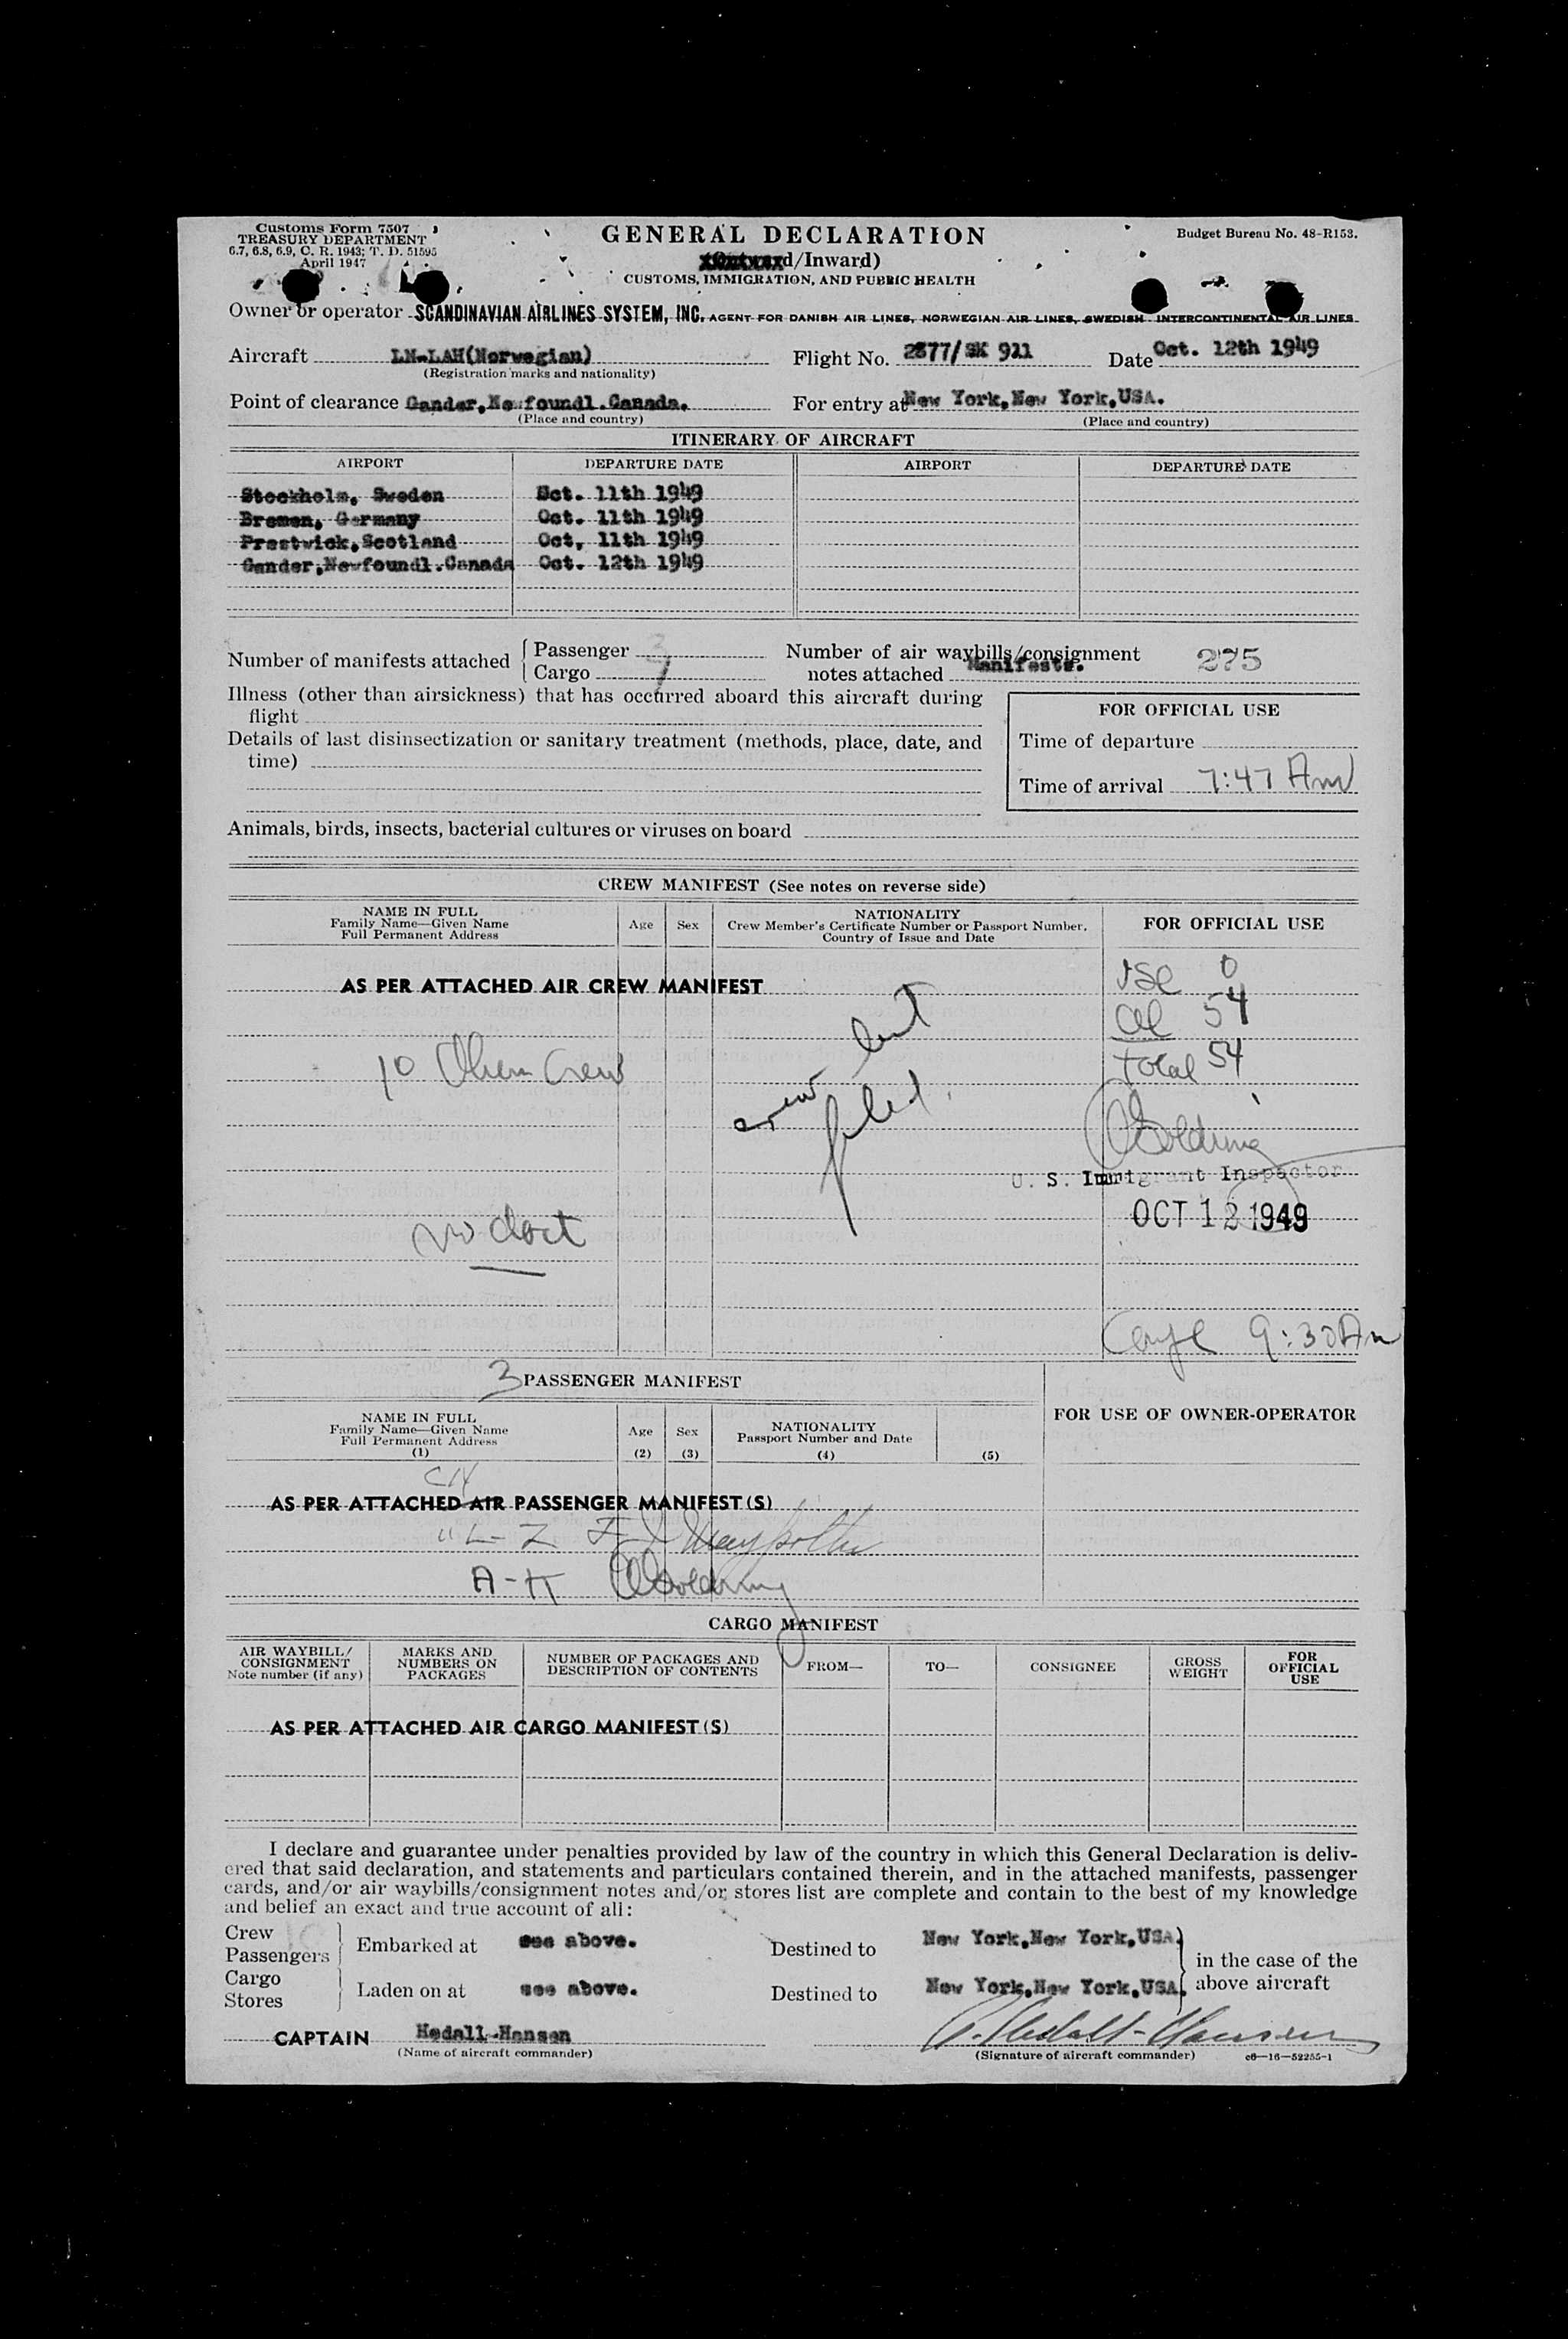 Customs Form 7507
TREASURY DEPARTMENT
6.7, 6.8, 6.9, C. R. 1943; T. D. 51595
April 1947
GENERAL DECLARATION
d/Inward)
CUSTOMS, IMMIGRATION, AND PUBLIC HEALTH
Budget Bureau No. 48-R153.
Owner or operator SCANDINAVIAN AIRLINES SYSTEM, INC. AGENT FOR DANISH AIR LINES, NORWEGIAN AIR LINES, SWEDISH INTERCONTINENTAL AIR LINES
Aircraft LN-LAH(Norwegian) Flight No. 2877/SK 911 Date Oct. 12th 1949
(Registration marks and nationality)
Point of clearance Gander,Newfoundl.Canada. For entry at New York,New York,USA.
(Place and country) (Place and country)
ITINERARY OF AIRCRAFT
AIRPORT DEPARTURE DATE AIRPORT DEPARTURE DATE
Stockholm, Sweden Oct. 11th 1949
Bremen, Germany Oct. 11th 1949
Prestwick,Scotland Oct, 11th 1949
Gander,Newfoundl.Canada Oct. 12th 1949
Number of manifests attached Passenger 3
Cargo 1
Number of air waybills/consignment
notes attached Manifests. 275
Illness (other than airsickness) that has occurred aboard this aircraft during
flight
Details of last disinsectization or sanitary treatment (methods, place, date, and
time)
FOR OFFICIAL USE
Time of departure
Time of arrival 7:47 Am
Animals, birds, insects, bacterial cultures or viruses on board
CREW MANIFEST (See notes on reverse side)
NAME IN FULL
Family Name—Given Name
Full Permanent Address
Age Sex
NATIONALITY
Crew Member's Certificate Number or Passport Number,
Country of Issue and Date
FOR OFFICIAL USE
AS PER ATTACHED AIR CREW MANIFEST
USC 0
al 54
total 54
10 Alien Crew
crew list
filed.
Goldring
U. S. Immigrant Inspector
OCT 12 1949
no doct
9:30 Am
3 PASSENGER MANIFEST
NAME IN FULL
Family Name—Given Name
Full Permanent Address
(1)
Age
(2)
Sex
(3)
NATIONALITY
Passport Number and Date
(4)
(5)
FOR USE OF OWNER-OPERATOR
AS PER ATTACHED AIR PASSENGER MANIFEST(S)
L-Z
A-K Goldring
CARGO MANIFEST
AIR WAYBILL/
CONSIGNMENT
Note number (if any)
MARKS AND
NUMBERS ON
PACKAGES
NUMBER OF PACKAGES AND
DESCRIPTION OF CONTENTS
FROM—
TO—
CONSIGNEE
GROSS
WEIGHT
FOR
OFFICIAL
USE
AS PER ATTACHED AIR CARGO MANIFEST(S)
I declare and guarantee under penalties provided by law of the country in which this General Declaration is deliv-
ered that said declaration, and statements and particulars contained therein, and in the attached manifests, passenger
cards, and/or air waybills/consignment notes and/or stores list are complete and contain to the best of my knowledge
and belief an exact and true account of all:
Crew
Passengers
Embarked at see above. Destined to New York,New York,USA.
Cargo
Stores
Laden on at see above. Destined to New York,New York,USA.
in the case of the
above aircraft
CAPTAIN Hedall-Hansen
(Name of aircraft commander)
Hedall-Hansen
(Signature of aircraft commander) c6—16—52255-1